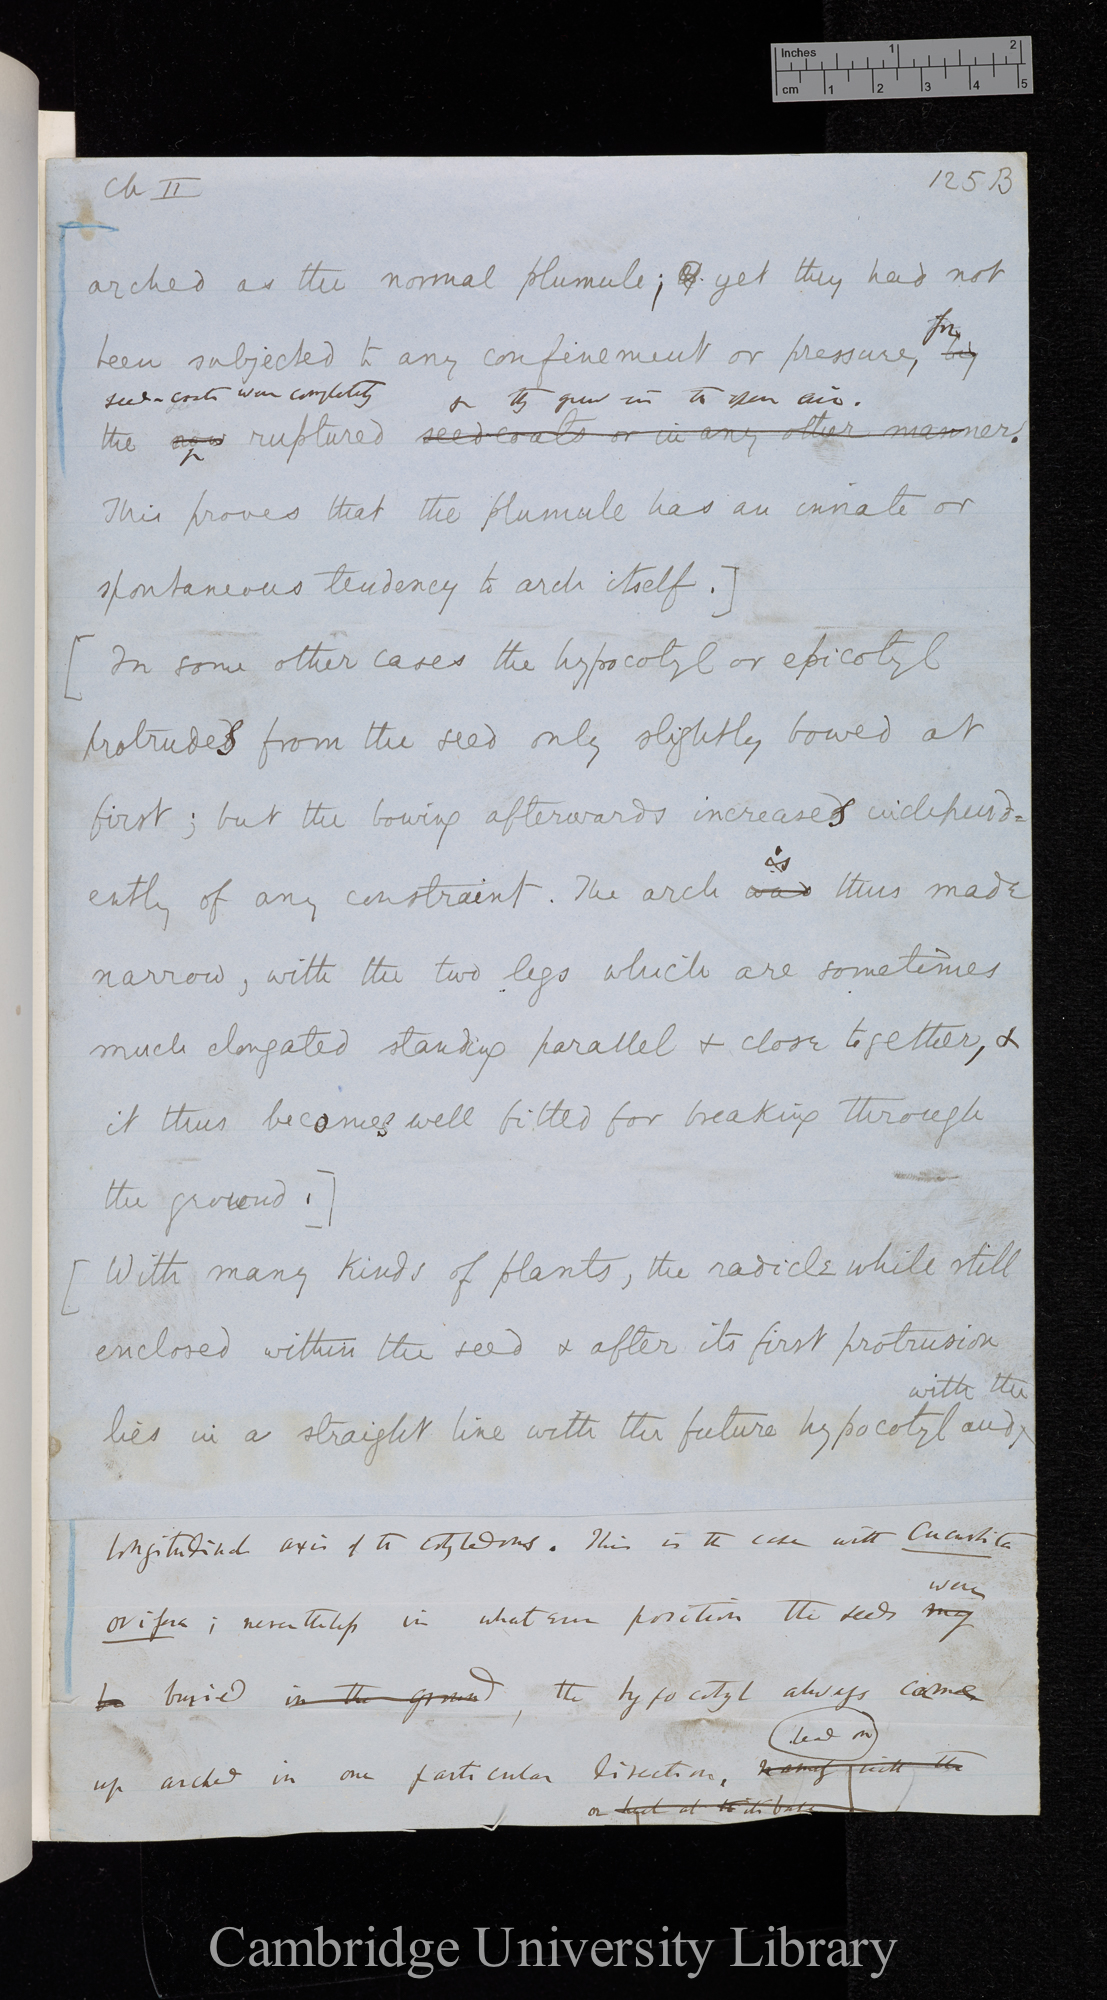 Inches 1 2
cm 1 2 3 4 5
Ch II 125 B
arched as the normal plumule; & yet they had not
for
been subjected to any confinement or pressure, by
seed-coats were completely or they grew in the open air.
the ruptured seed-coats or in any other manner.
This proves that the plumule has an innate or
spontaneous tendency to arch itself.]
[In some other cases the hypocotyl or epicotyl
protrudes from the seed only slightly bowed at
first; but the bowing afterwards increases independ=
ently of any constraint. The arch was is thus made
narrow, with the two legs which are sometimes
much elongated standing parallel & close together, &
it thus becomes well fitted for breaking through
the ground.]
[With many kinds of plants, the radicle while still
enclosed within the seed & after its first protrusion
with the
lies in a straight line with the future hypocotyl and
longitudinal axis of the cotyledons. This is the case with Cucurbita
were
ovifera; nevertheless in whatever position the seeds may
be buried in the ground, the hypocotyl always came
lead on
up arched in one particular direction. namely with the
or at its base
Cambridge University Library